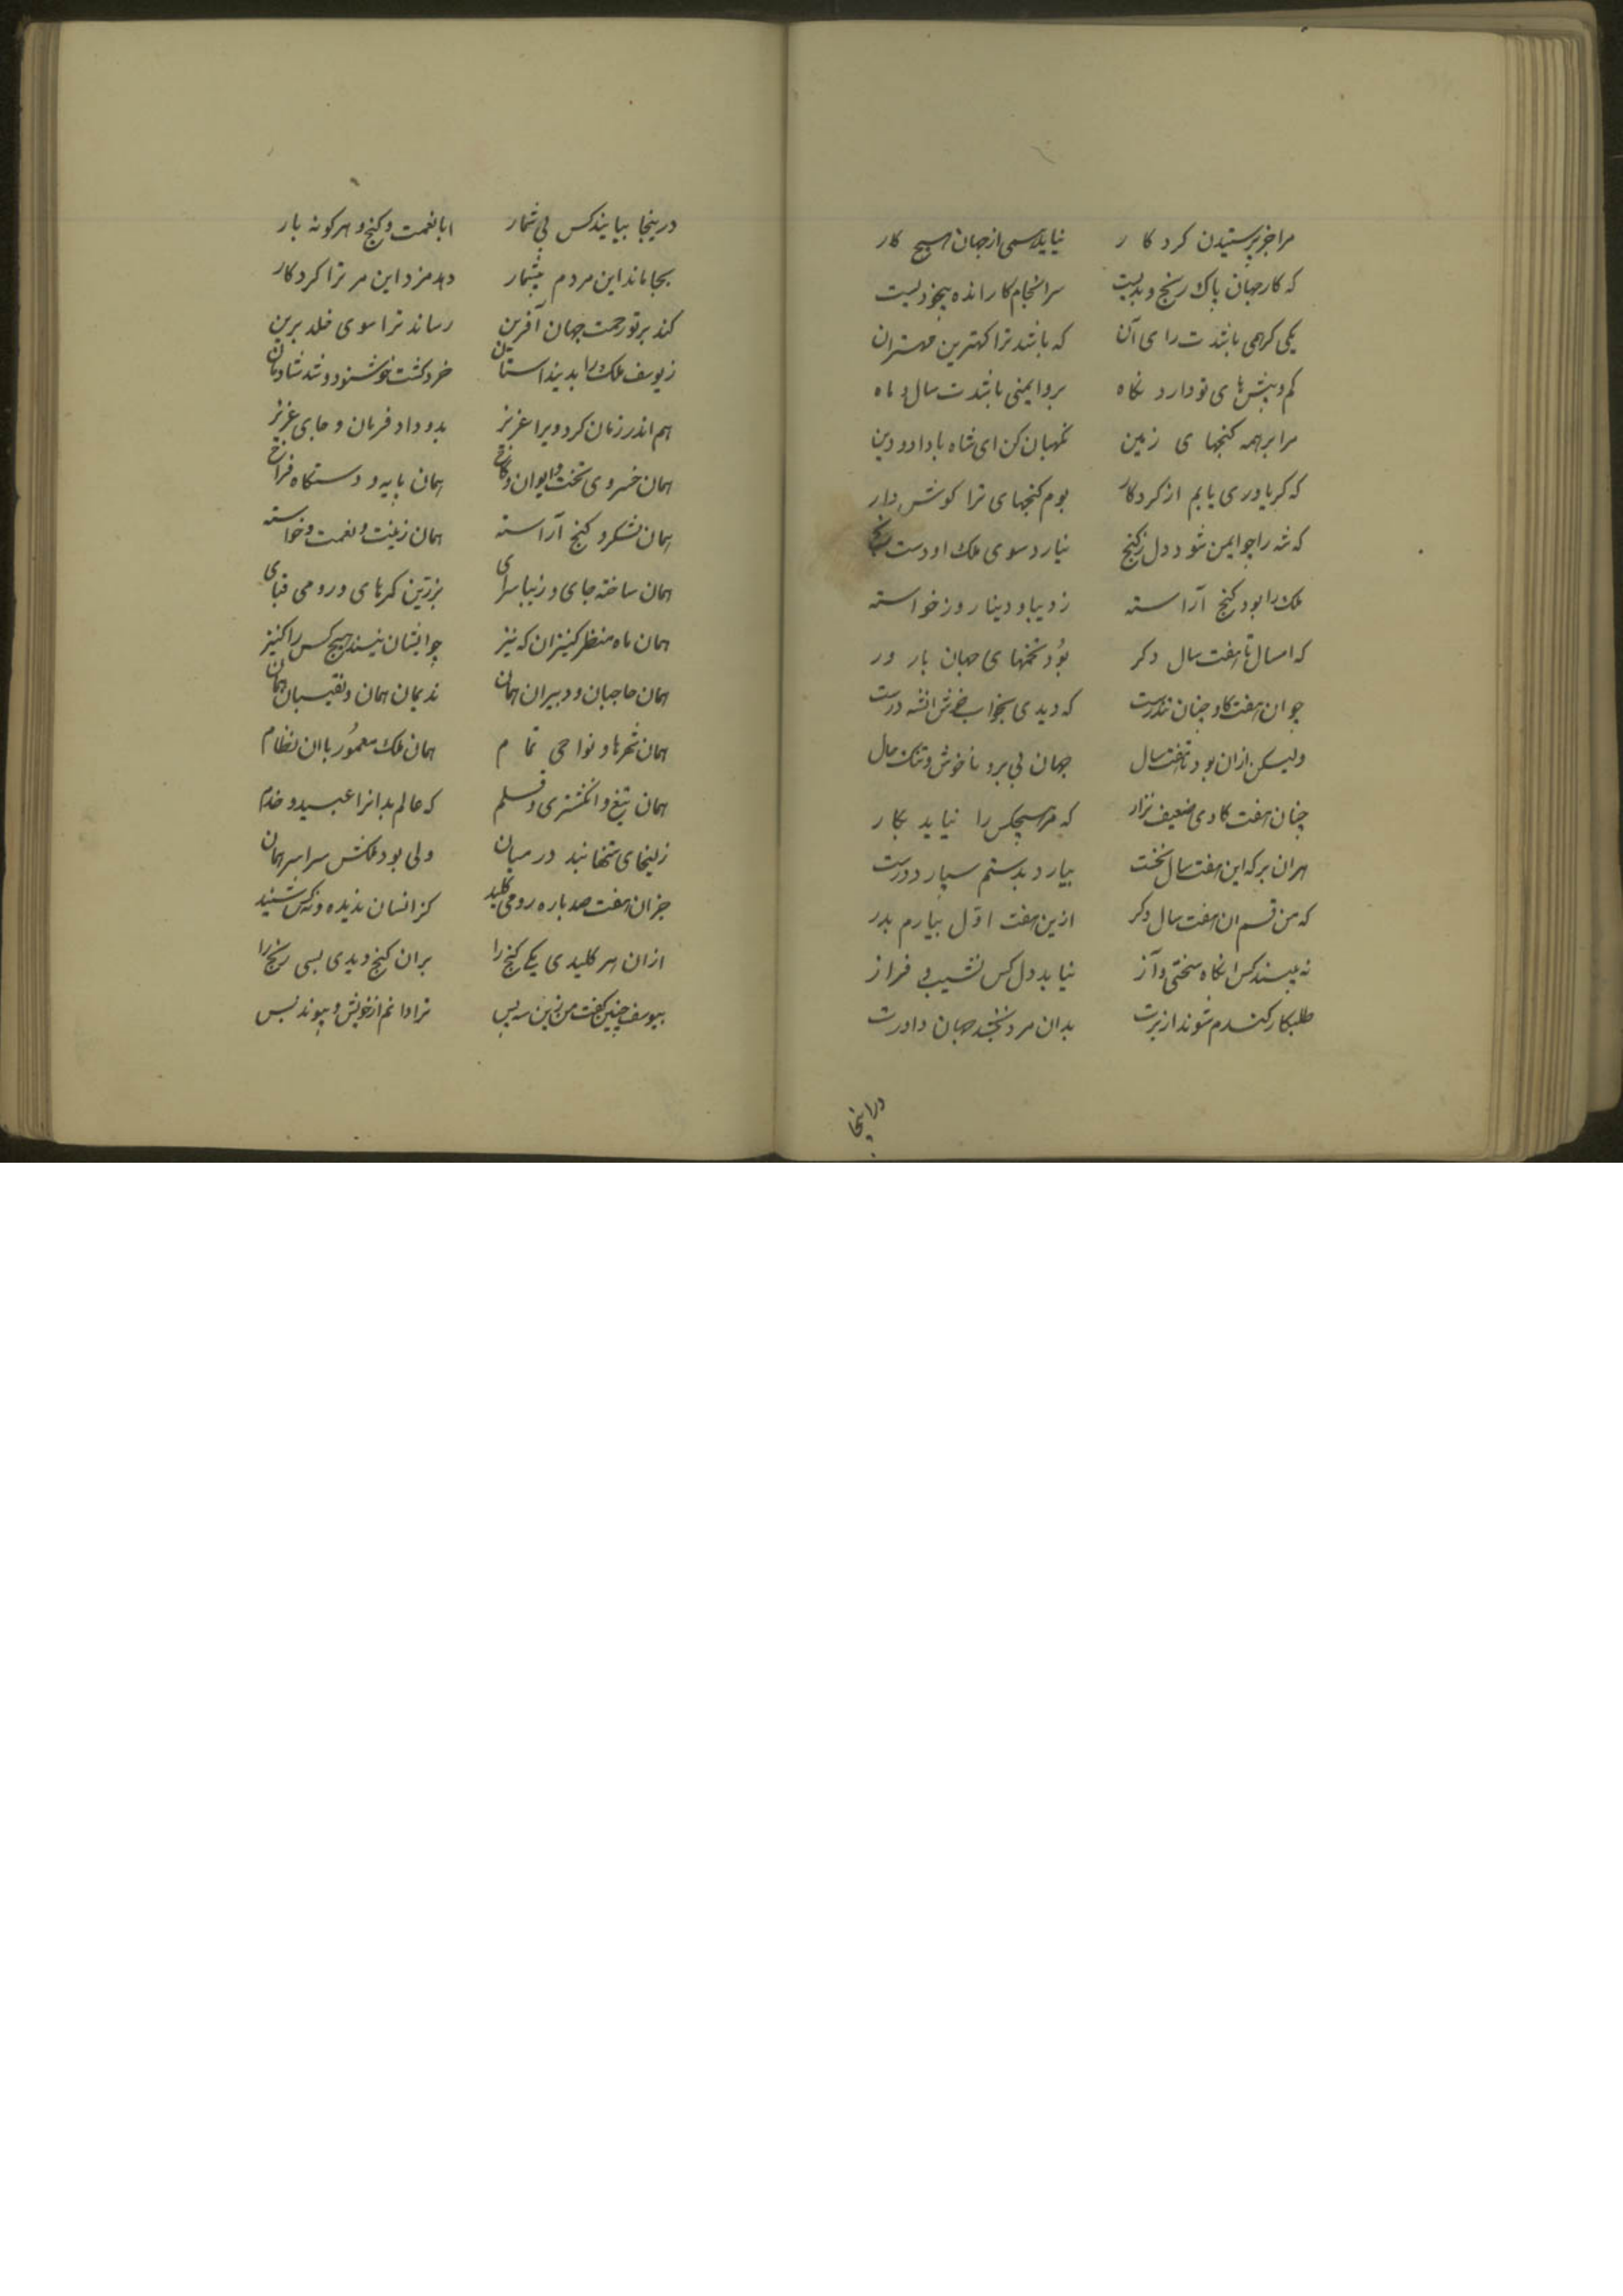 مرا جز پرستیدن کردکار نیاید همی از جهان هیچ کار
که کار جهان پاک رنج و بدیست سرانجام کار اندُه بیخودیست
یکی کرهمی باشدت رای آن که باشد ترا کهترین مهتران
کم و بیش‌های تو دارد نکاه بدو ایمنی باشدت سال و ماه
مرا بر همه کنجهای زمین نکهبان کن ای شاه با داد و دین
که کر یاوری یابم از کردکار بوم کنجهای ترا کوش‌دار
که شه را چو ایمن شود دل زکنج نیارد سوی ملک او دست رنج
ملک را بود کنج آراسته ز دیبا و دینار و ز خواسته
که امسال تا هفت سال دکر بُوَد تخمهای جهان بارور
چو ان هفت کاو چنان تندرست که دیدی بخواب خوش ای شه درست
ولیکن ازان بود تا هفت سال جهان بی برو ناخوش و تنک حال
چنان هفت کاوی ضعیف نزار که مر هیچکس را نیاید بکار
هران بر که این هفت سال نخست بیارد بدستم سپارد درست
که من قسم ان هفت سال دکر ازین هفت اوّل بیارم بدر
نه بیند کس انکاه سختی و آز نیابد دل کس نشیب و فراز
طلبکار کندم شوند از برت بدان مرد بخشد جهان داورت
دراینجا
درینجا بیایند کس بی شمار ابا نعمت و کنج و هرکونه بار
بجا ماند این مردم بیشمار دهد مزد این مر ترا کردکار
کند بر تو رحمت جهان آفرین رساند ترا سوی خلد برین
ز یوسف ملک را بدیند استان خرد کشت خوشنود و شد شادمان
هم اندر زمان کرد ویرا عزیز بدو داد فرمان و جای عزیز
همان خسروی تخت و ایوان و کاخ همان پایه و دستکاه فراخ
همان لشکر و کنج آراسته همان زینت و نعمت و خواسته
همان ساخته جای و زیبا سرای بزرّین کمرهای و رومی قبای
همان ماه منظر کنیزان که نیز چو ایشان نبیند هیچ کس را کنیز
همان حاجبان و دبیران همان ندیمان همان و نقیبان همان
همان شهرها و نواحی تمام همان ملک معمُور با ان نظام
همان تیغ و انکشتری و قلم که عالم بدانرا عبید و خدم
زلیخای تنها نبد در میان ولی بود ملکش سراسر همان
جز ان هفت صد باره رومی کلید کز انسان ندیده و نه کس شنید
ازان هر کلیدی یکی کنج را بران کنج دیدی بسی رنج را
بیوسف چنین کفت من زین سپس ترا دانم از خویش و پیوند بس